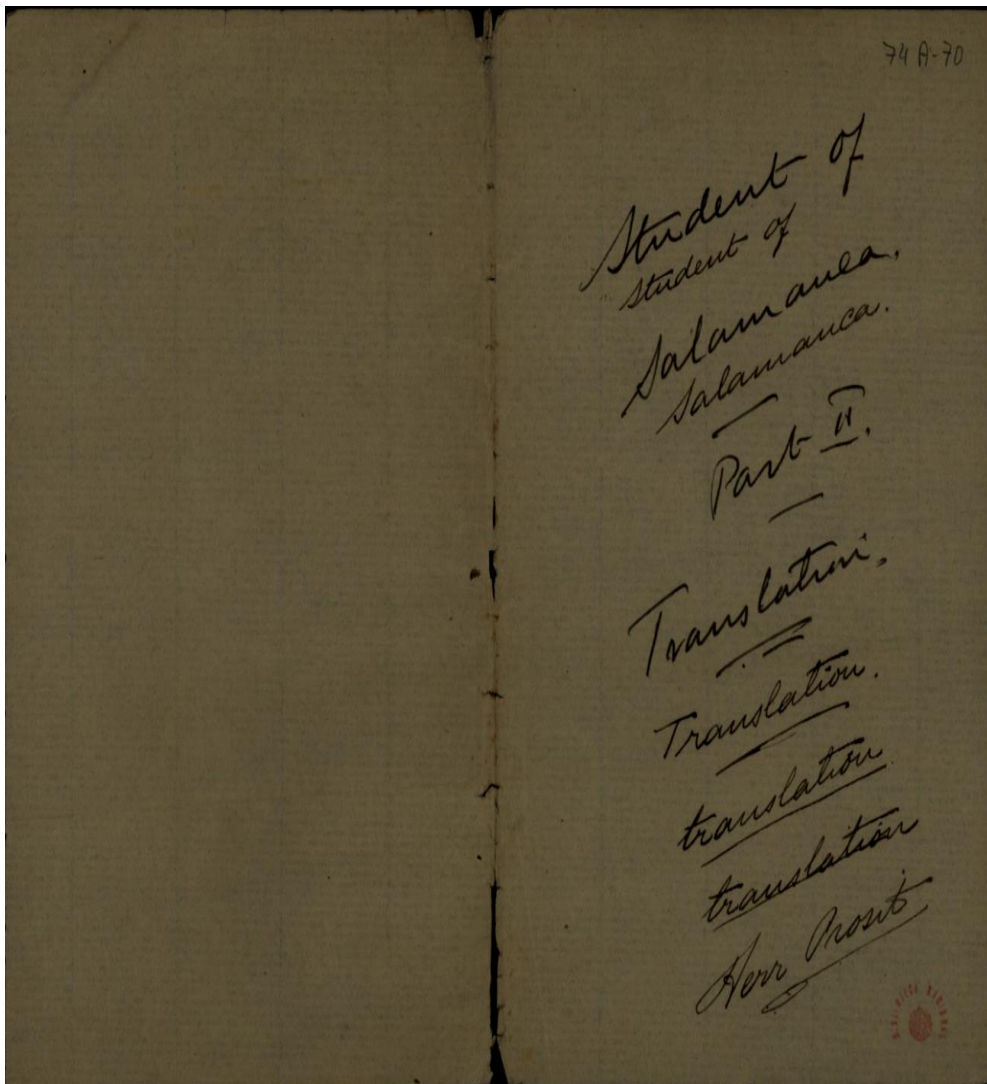 74 A-70
Student of
Student of
Salamanca.
Salamanca.
Part II.
Translation.
Translation.
translation
translation
Herr Prosit
BIBLIOTECA NACIONAL